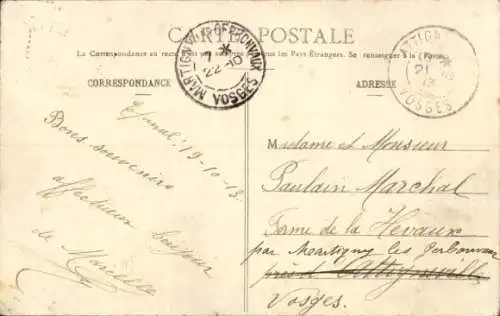 CARTE POSTALE
La Correspondance au recto
tous les Pays Étrangers. Se renseigner à la
CORRESPONDANCE
ADRESSE
MARTIGNY
GERBONVAUX
7 *
22-10
VOSGES
ATTIGN
21
13
VOSGES
Epinal 19-10-13
Bons souvenirs
affectueux bonjour
de Marcelle
Madame et Monsieur
Paulain Marchal
Ferme de la Hevaux
par Martigny les Gerbonvaux
près d'Attignéville
Vosges.